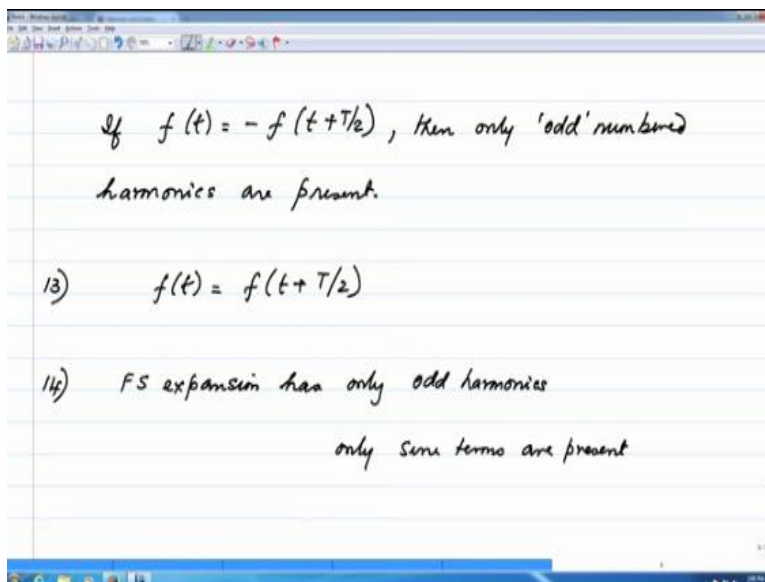 If f(t) = - f(t+T/2), then only 'odd' numbered
harmonics are present.
13) f(t) = f(t+ T/2)
14) FS expansion has only odd harmonics
only sine terms are present